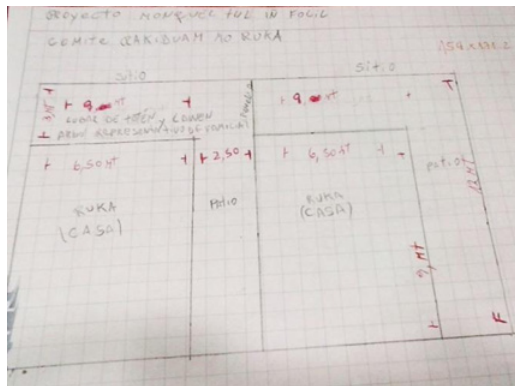 PROYECTO MONGUEL FUL IN FOCIL
COMITE RAKIDUAM NO RUKA
SITIO
SITIO
3 MT
9, MT
LUGAR DE TOTEN y LOWEN
ARBOL REPRESENTATIVO DE FAMILIA
9, MT
6,50 MT
2,50
6,50 MT
PATIO
12 MT
RUKA
(CASA)
PATIO
RUKA
(CASA)
9, MT